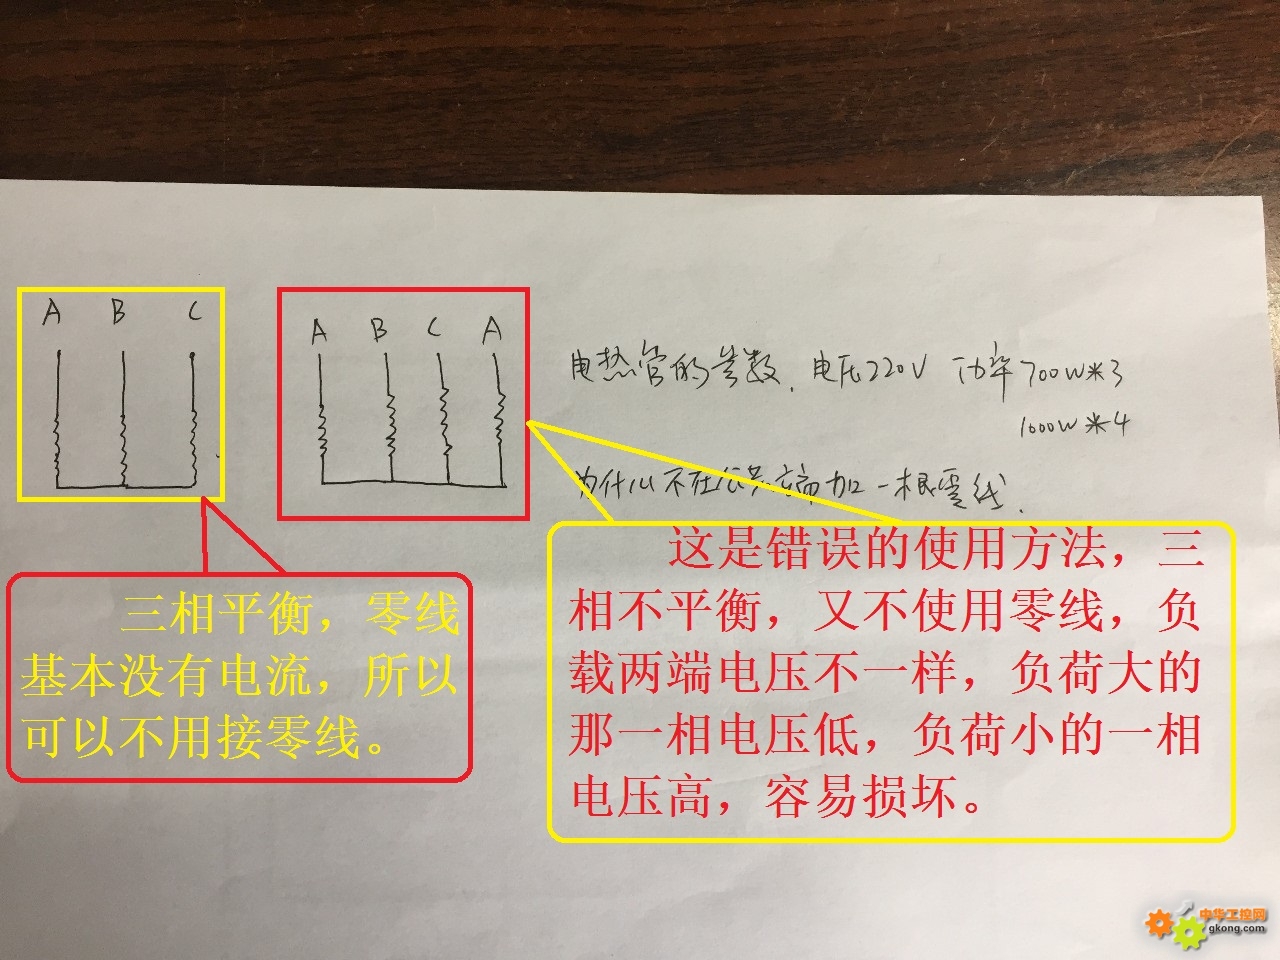 A B C
A B C A
电热管的参数. 电压220V 功率700W*3
1000W*4
为什么不在公共端加一根零线.
三相平衡，零线
基本没有电流，所以
可以不用接零线。
这是错误的使用方法，三
相不平衡，又不使用零线，负
载两端电压不一样，负荷大的
那一相电压低，负荷小的一相
电压高，容易损坏。
中华工控网
gkong.com